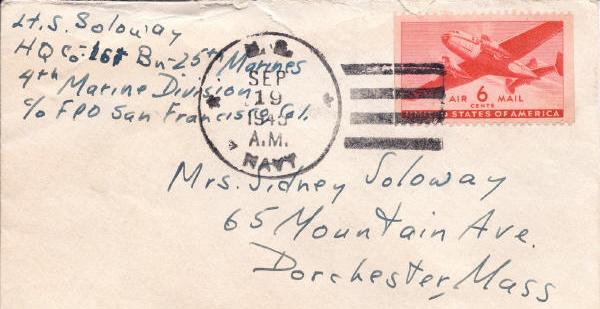 Lt. S. Soloway
HQ Co-1st Bn-25th Marines
4th Marine Division
c/o FPO San Francisco Cal.
U.S.
SEP
19
1945
A.M.
NAVY
AIR 6 MAIL
CENTS
UNITED STATES OF AMERICA
Mrs. Sidney Soloway
65 Mountain Ave.
Dorchester, Mass